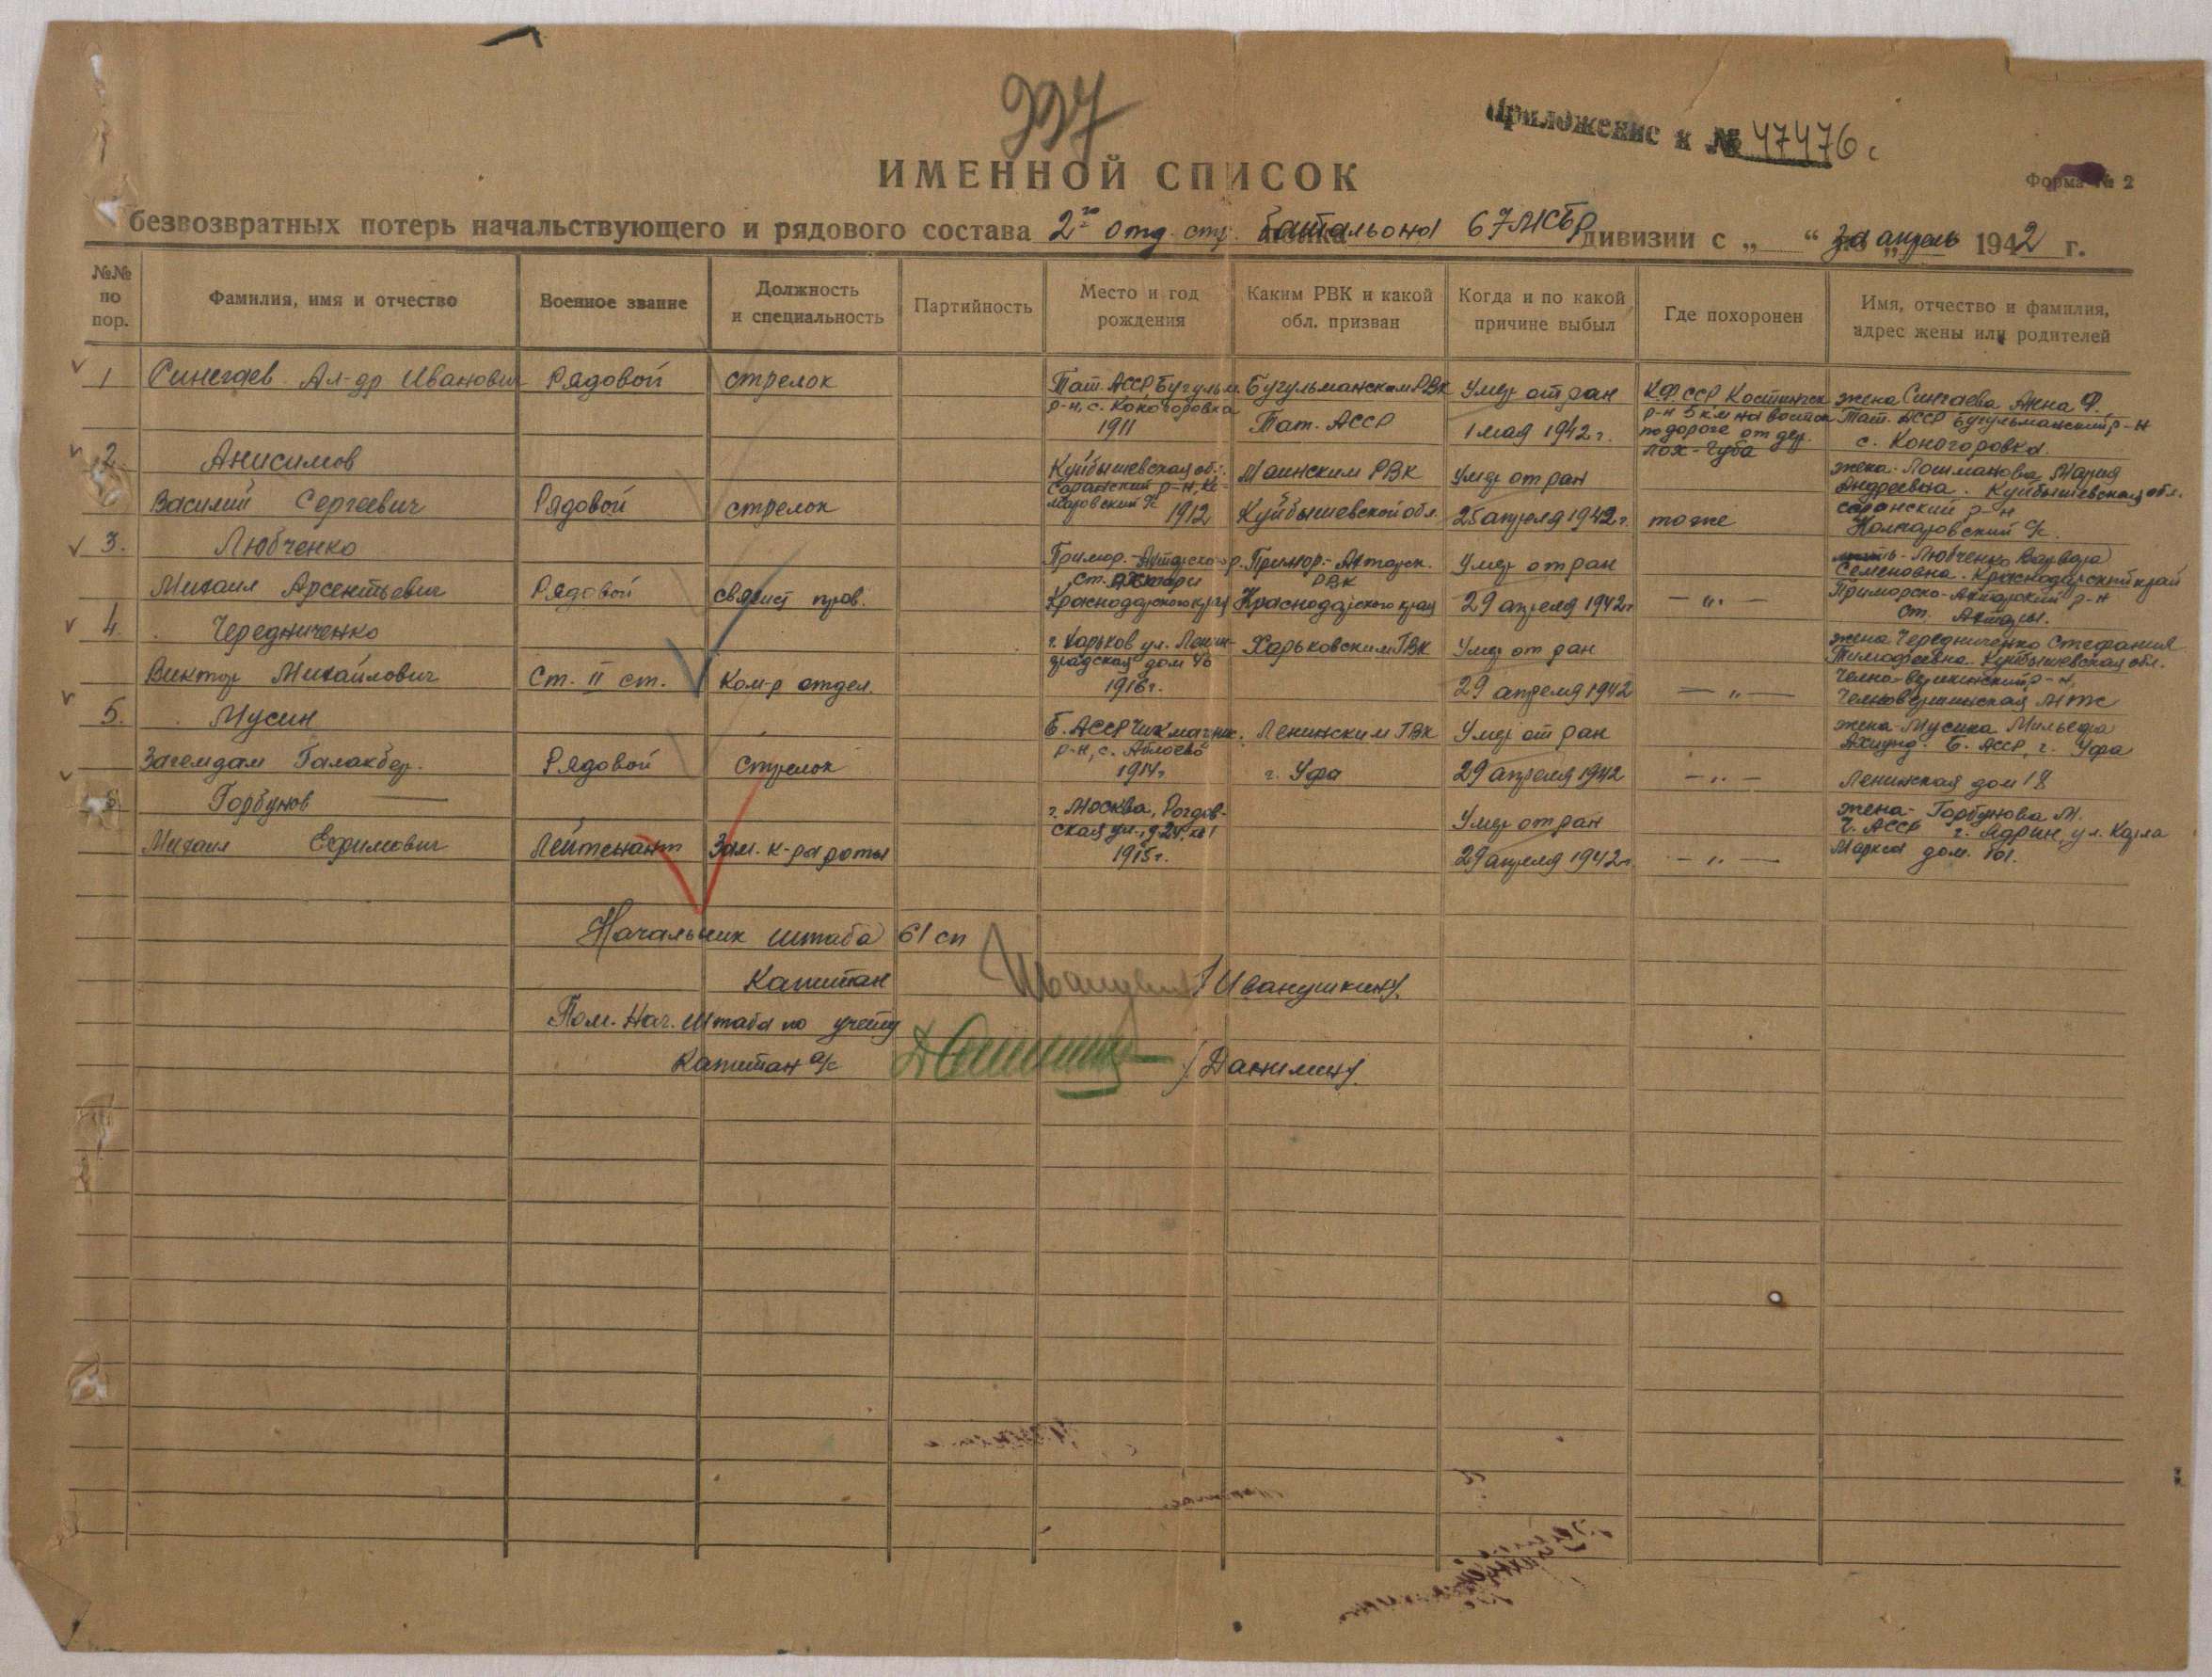 337
Приложение к № 47476с
ИМЕННОЙ СПИСОК
Форма № 2
безвозвратных потерь начальствующего и рядового состава 2го отд. стр. батальона 67 МСБр дивизии с „ “ за апрель 1942 г.
№№ по пор.
Фамилия, имя и отчество
Военное звание
Должность и специальность
Партийность
Место и год рождения
Каким РВК и какой обл. призван
Когда и по какой причине выбыл
Где похоронен
Имя, отчество и фамилия, адрес жены или родителей
1 Синегаев Ал-др Иванович Рядовой стрелок
Тат. АССР, Бугульм.
р-н, с.
1911
Бугульманским РВК
Тат. АССР
Умер от ран
1 мая 1942 г.
КФССР
р-н 5 км на восток
по дороге от дер.
Лох-Губа
жена Синегаева Анна Ф.
Тат. АССР Бугульманский р-н
с. Коногоровка
2 Анисимов
Василий Сергеевич Рядовой стрелок
Куйбышевская об.
р-н,
1912
Маинским РВК
Куйбышевской обл.
Умер от ран
25 апреля 1942 г.
тоже
жена - Лошманова Мария
Андреевна. Куйбышевская обл.
р-н
3. Любченко
Михаил Арсентьевич Рядовой связист пров.
Примор.-Ахтарско р.
ст. Ахтари
Краснодарского края
Примор.-Ахтарск.
РВК
Краснодарского края
Умер от ран
29 апреля 1942 г
— „ —
мать - Любченко Варвара
Семеновна. Краснодарский край
Приморско-Ахтарский р-н
ст. Ахтари.
4. Чередниченко
Виктор Михайлович Ст. II ст. Ком-р отдел.
г. Харьков ул. Ленин-
градская дом 46
1916 г.
Харьковским ГВК
Умер от ран
29 апреля 1942
— „ —
жена Чередниченко Стефания
Тимофеевна. Куйбышевская обл.
Челно-Вершинский р-н,
Челновершинская МТС
5. Мусин
Загемдам Галакбер. Рядовой стрелок
Б. АССР Чикмагуш.
р-н, с. Аблаево
1914 г
Ленинским ГВК
г. Уфа
Умер от ран
29 апреля 1942
— „ —
жена - Мусина
Б. АССР, г. Уфа
Ленинская дом 18
6 Горбунов
Михаил Ефимович Лейтенант Зам. к-ра роты
г. Москва,
ская ул.,
1915 г.
Умер от ран
29 апреля 1942 г.
— „ —
жена - Горбунова М.
Ч. АССР г. Ядрин, ул. Карла
Маркса дом. 101.
Начальник штаба 61 сп
Капитан /Иванушкин/.
Пом. Нач. Штаба по учету
Капитан а/с /Данилин/.